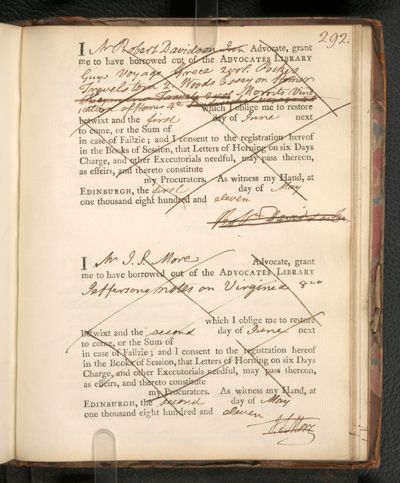 292.
I Mr Robert Davidson Jun Advocate, grant
me to have borrowed out of the ADVOCATES LIBRARY
Guys Voyage Greece 2 vol. Pockes
Travels tom 2 Woods Essay on Homer
Morrits Vind
ication of Homer 4to which I oblige me to restore
betwixt and the first day of June next
to come, or the Sum of
in case of Failzie; and I consent to the registration hereof
in the Books of Session, that Letters of Horning on six Days
Charge, and other Executorials needful, may pass thereon,
as effeirs, and thereto constitute
my Procurators. As witness my Hand, at
EDINBURGH, the first day of May
one thousand eight hundred and eleven
I Mr J. S. More Advocate, grant
me to have borrowed out of the ADVOCATES LIBRARY
Jeffersons notes on Virginia 8vo
which I oblige me to restore
betwixt and the second day of June next
to come, or the Sum of
in case of Failzie; and I consent to the registration hereof
in the Books of Session, that Letters of Horning on six Days
Charge, and other Executorials needful, may pass thereon,
as effeirs, and thereto constitute
my Procurators. As witness my Hand, at
EDINBURGH, the second day of May
one thousand eight hundred and eleven
J S More